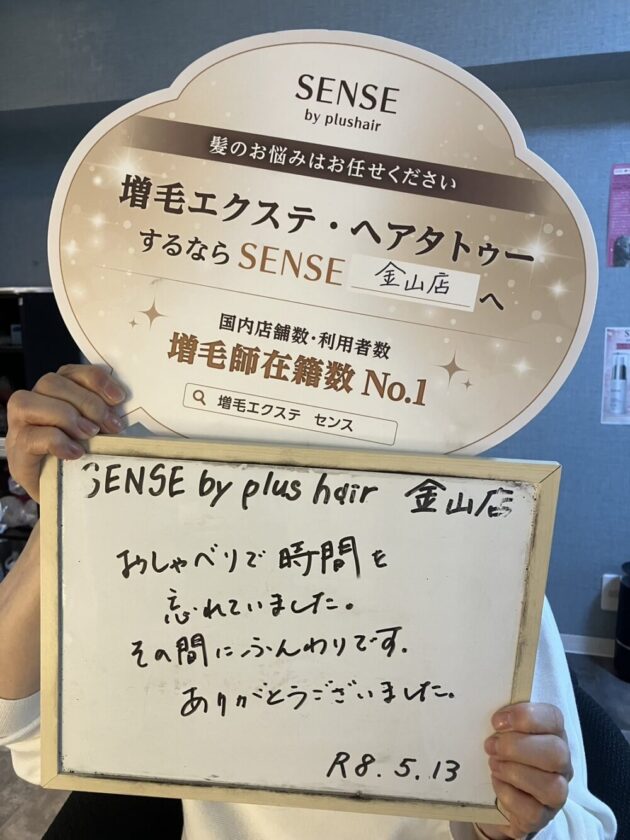 SENSE
by plushair
髪のお悩みはお任せください
増毛エクステ・ヘアタトゥー
するなら SENSE 金山店 へ
国内店舗数・利用者数
増毛師在籍数 No.1
増毛エクステ センス
SENSE by plus hair 金山店
おしゃべりで時間を
忘れていました。
その間にふんわりです。
ありがとうございました。
R8.5.13